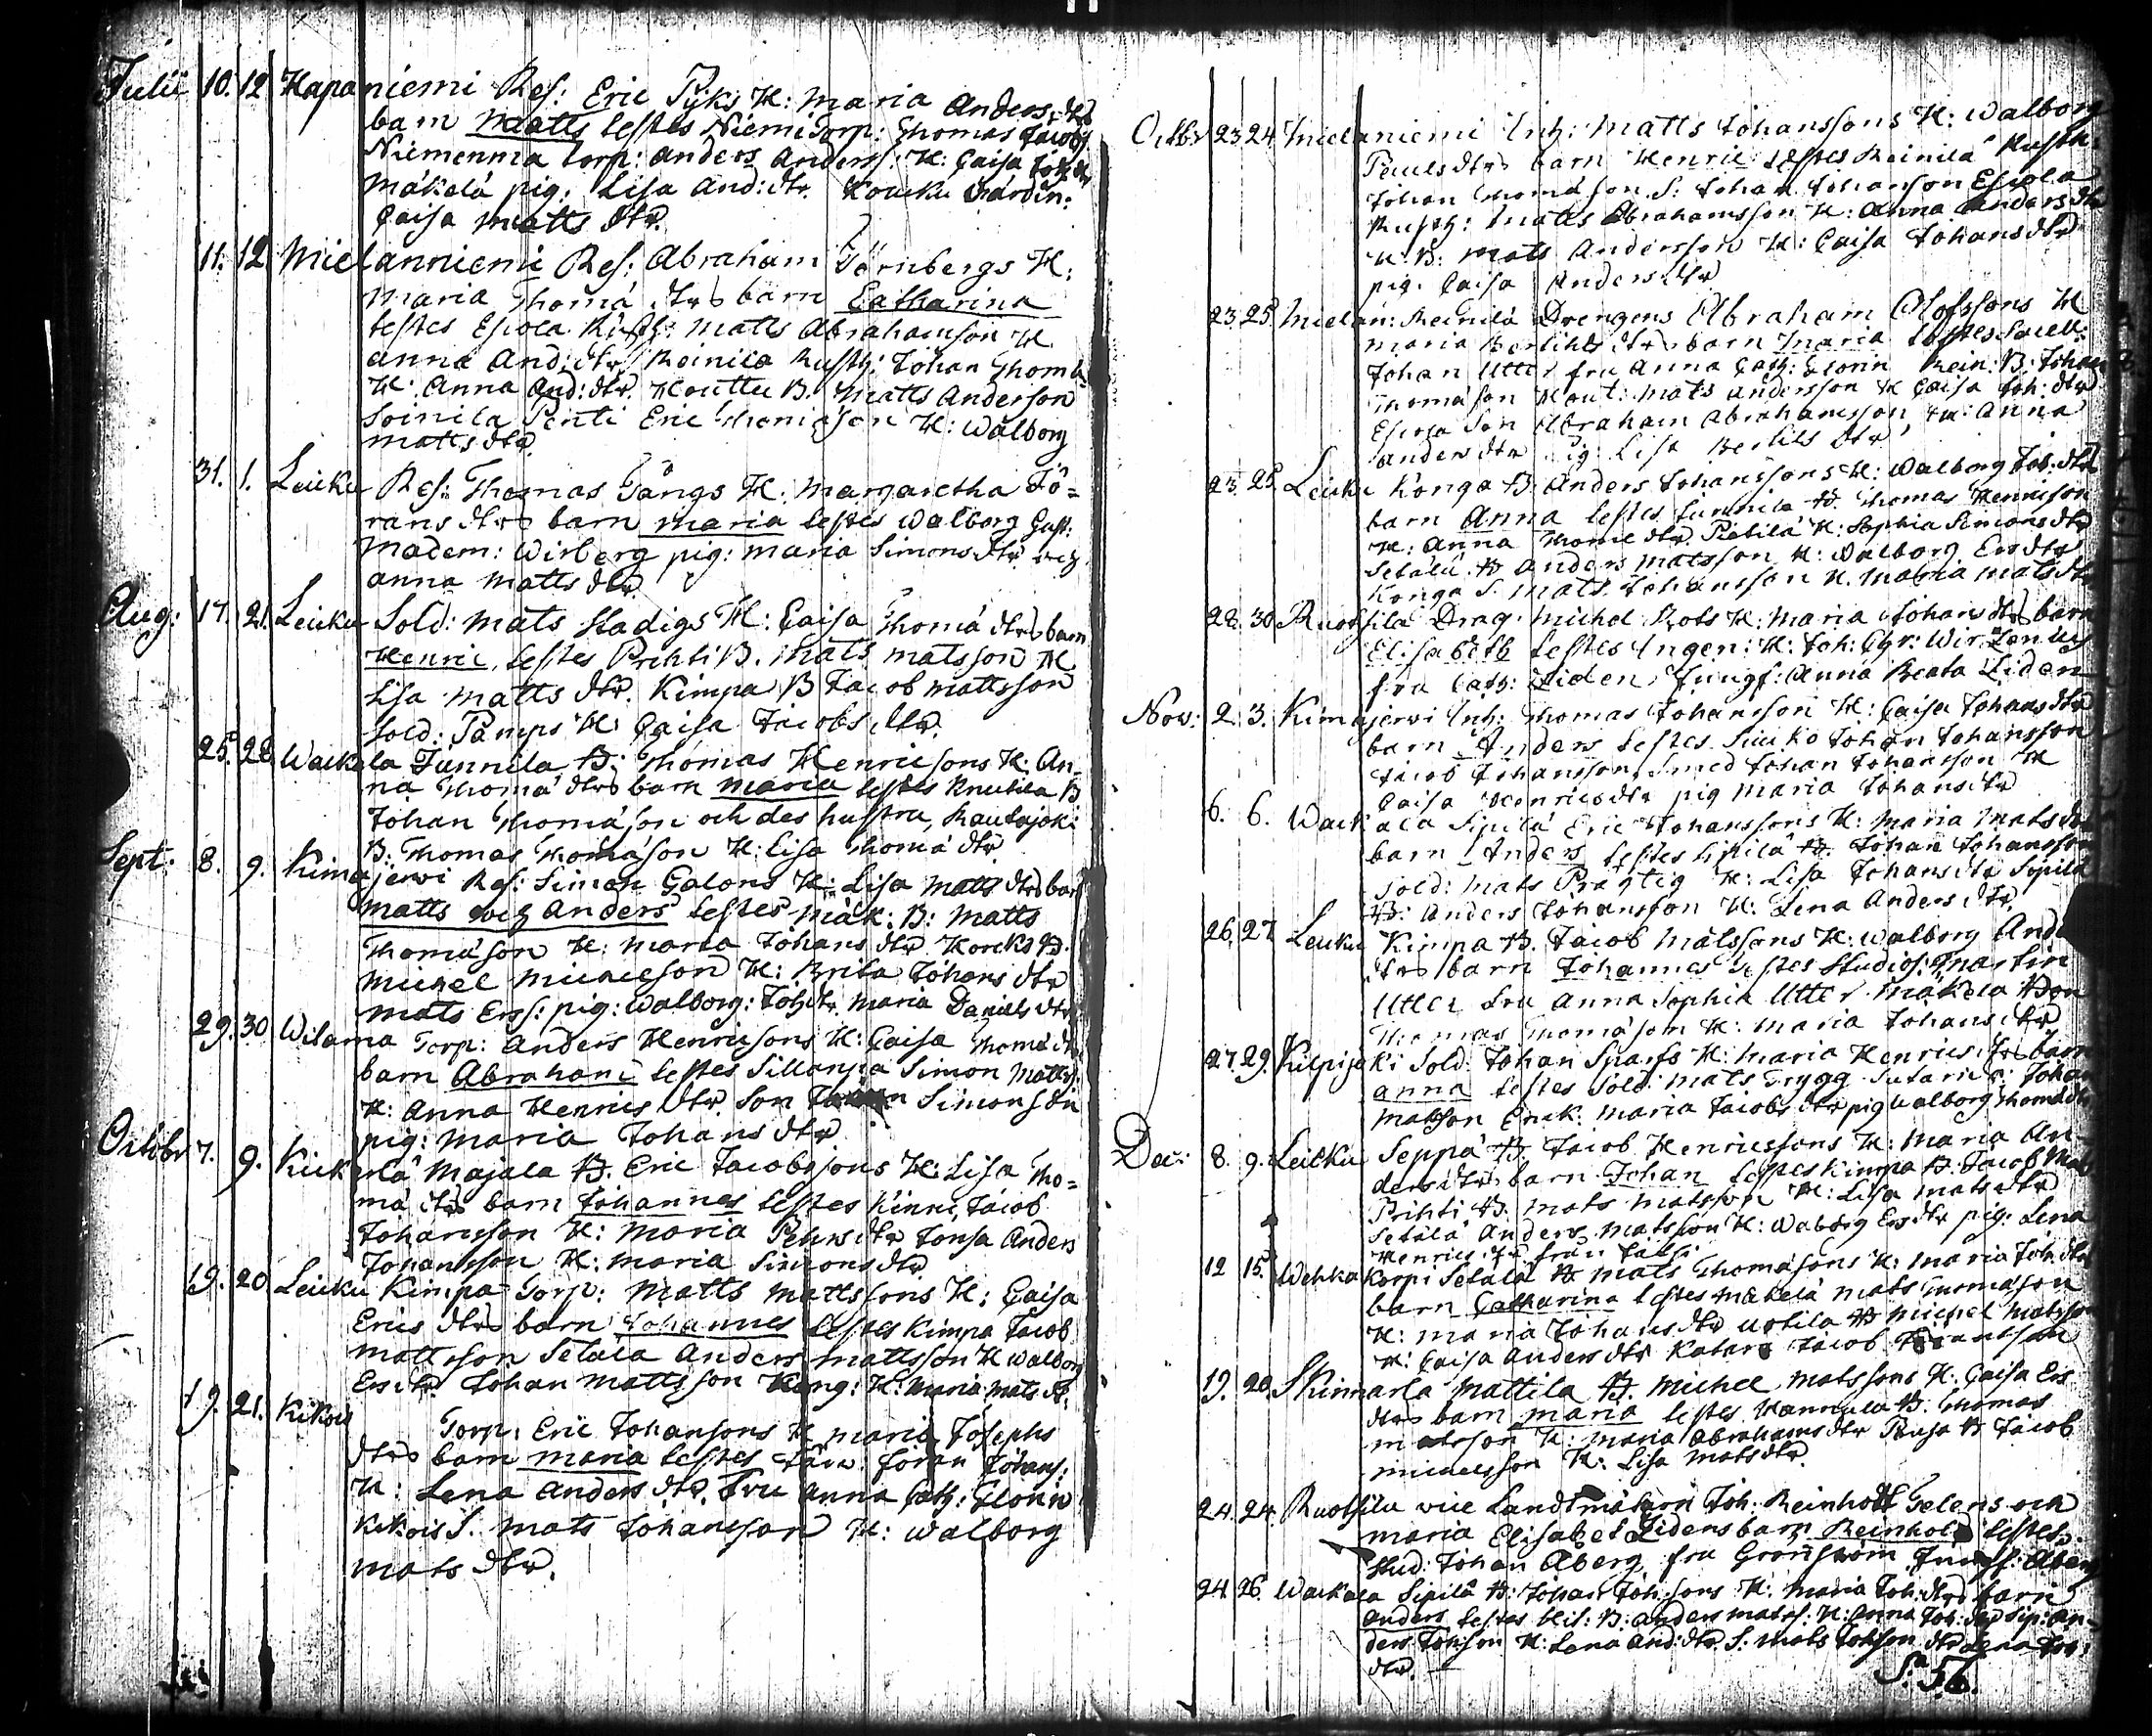 Julii 10. 12 Hapaniemi Ref: Eric Pyks H: Maria Anders dtr
barn Matts testes Niemi Torp: Thomas Jacobs
Niemenma torp: anders Anderss: H: Caisa Joh dtr
Mäkelä pig. Lisa And: dtr. Koucku Värdin:
Caisa Matts dtr.
11. 12 Mielanniemi Ref: Abraham Törnbergs H:
Maria Thomä dtrs barn Catharina
testes Escola Rusth: Matts Abrahamson H
anna And: dtr Reinilä Rusth: Johan Thomä
H: Anna And: dtr. Kouttu B. Matts Anderson
Soinila Pentti Eric Thomäson H: Walborg
Matts dtr.
31. 1. Leuku Ref: Thomas Gångs H: Margaretha Jö=
rans dtrs barn Maria testes Walborg Gust:
Madem: Wirberg pig: Maria Simons dtr
anna Matts dtr
Aug: 17. 21. Leuku Sold: Mats Stadigs H: Caisa Thomä dtrs barn
Henric, testes Prihti B. Mats Matsson H
Lisa Matts dtr. Kimpa B Jacob Mattsson
Sold: Pamps H: Caisa Jacobs dtr.
25. 28. Wackala Junnila B: Thomas Henricsons H: An
na Thomä dtrs barn Maria testes Knutila B
Johan Thomäson och des hustru, Rautajoki
B: Thomas Thomäson H: Lisa Thomä dtr
Sept: 8. 9. Kimajerwi Ref: Simon Galons H: Lisa Matts dtrs barn
Matts och Anders testes Mäk: B: Matts
Thomäson H: Maria Johans dtr Koucku B.
Michel Michelson H: Brita Johans dtr
Mats Erss: pig: Walborg: Joh dtr Maria Daniels dtr
29. 30 Wilama Torp: Anders Henricsons H: Caisa Thomä dtr
barn Abraham testes Sillanpä Simon Matts:
H: Anna Henrics dtr. Son Simonson
pig: Maria Johans dtr
Octobr 7. 9. Kickerlä Majala B. Eric Jacobssons H: Lisa Tho=
mä dtrs barn Johannes testes Kinni Jacob
Johansson H: Maria Pehrs dtr Jonsa Anders
Johansson H: Maria Simons dtr
19. 20 Leuku Kimpa Torp: Matts Mattssons H: Caisa
Erics dtrs barn Johannes testes Kimpa Jacob
Mattsson Setälä Anders Mattsson H Walborg
Ers dtr Johan Mattsson Kong: H: Maria Mats dr.
19. 21. Kikois Torp: Eric Johansons H Maria Josephs
dtrs barn Maria testes Joran Johans:
H: Lena Anders dtr. Fru Anna Cath: Florin
Kikois S. Mats Johansson H: Walborg
Mats dtr.
Octbr 23 24 Mielaniemi Inh: Matts Johanssons H: Walborg
Pauls dtrs barn Henric testes Reinilä Rusth:
Johan Thomäson S: Johan Johanson Escola
Rusth: Matts Abrahamsson H: Anna Anders dtr
B: Mats Andersson H: Caisa Johans dtr
pig. Caisa Anders dtr
23. 25. Mielan: Reinilä Drengens Abraham Olofssons H
Maria Bertihls dtrs barn Maria testes
Johan Utter fru Anna Cath: Florin Rein: B: Johan
Thomäson Kout: Mats Andersson H Caisa Joh: dtr
Escola Son Abraham Abrahamsson, H: Anna
Anders dtr Pig: Lisa Bertils dtr
23. 25 Leuku Konga B. Anders Johanssons H: Walborg Joh: dtrs
barn Anna testes Junnila B. Thomas Henricsson
H: Anna Thome dtr. Pietilä H: Sophia Simons dtr
Setälä B Anders Matsson H: Walborg Ers dtr
Konga S. Mats Johansson H. Maria Mats dtr
28. 30 Ruohsila Drag. Michel Rots H: Maria Johans dtrs barn
Elisabeth testes Ingen: H: Joh: Chr:
fru Cath: Liden Jungf: Anna Beata Liden
Nov: 2. 3. Kimajerwi Inh: Thomas Johansson H: Caisa Johans dtr
barn Anders testes Johan Johansson
Jacob Johansson, Smed Johan Johansson H
Caisa Henrics dtr pig Maria Johans dtr
6. 6. Wackala Sipilä Eric Johanssons H: Maria Mats dr
barn Anders testes Sipilä B. Johan Johansson
Sold: Mats Prägtig H: Lisa Johans dtr Sipilä
B: Anders Johansson H: Lena Anders dtr.
26. 27 Leuku Kimpa B. Jacob Matssons H: Walborg Ande
dtrs barn Johannes testes Studios: Martin
Utter fru Anna Sophia Utter Mäkelä Bon
Thomas Thomäson H: Maria Johans dtr
27. 29. Kilpijoki Sold: Johan Sparfs H: Maria Henrics dtrs barn
Anna testes Sold: Mats Trygg Johan
Matsson Enck: Maria Jacobs dtr pig Walborg Thomä dtr
Dec: 8. 9. Leuku Seppä B. Jacob Henricssons H: Maria An
ders dtrs barn Johan testes Kimpa B. Jacob Mats
Prihti B. Mats Matsson H: Lisa Mats dtr
Setälä Anders Matsson H: Walborg Ers dtr pig: Lena
Henrics dtr från
12 15. Wehkakorpi Setälä B Mats Thomäsons H: Maria Joh dtrs
barn Catharina testes Mäkelä Mats Thomäson
H: Maria Johans dtr Uotila B Michel Matsson
H: Caisa Anders dtr Jacob
19. 20. Skinnarla Mattila B. Michel Matssons H: Caisa Ers
dtrs barn Maria testes Hannula B. Thomas
Matsson H: Maria Abrahams dtr B Jacob
Michelsson H: Lisa Mats dtr.
24. 24. Ruohsila vice Landtmätarn Joh: Reinholt Gelens och
Maria Elisabet Lidens barn Reinhold testes.
Stud: Johan Åberg fru Grönström Jungf: Åberg
24. 26. Wackala Sipilä B: Johan Johssons H: Maria Joh: dtrs barn
Anders testes B: Anders Matss: H: Anna Joh: dtr Sip: An=
ders Johson H: Lena And: dtr. S: Mats Johson dtr Lena Joh:
dtr.
S:a 56.